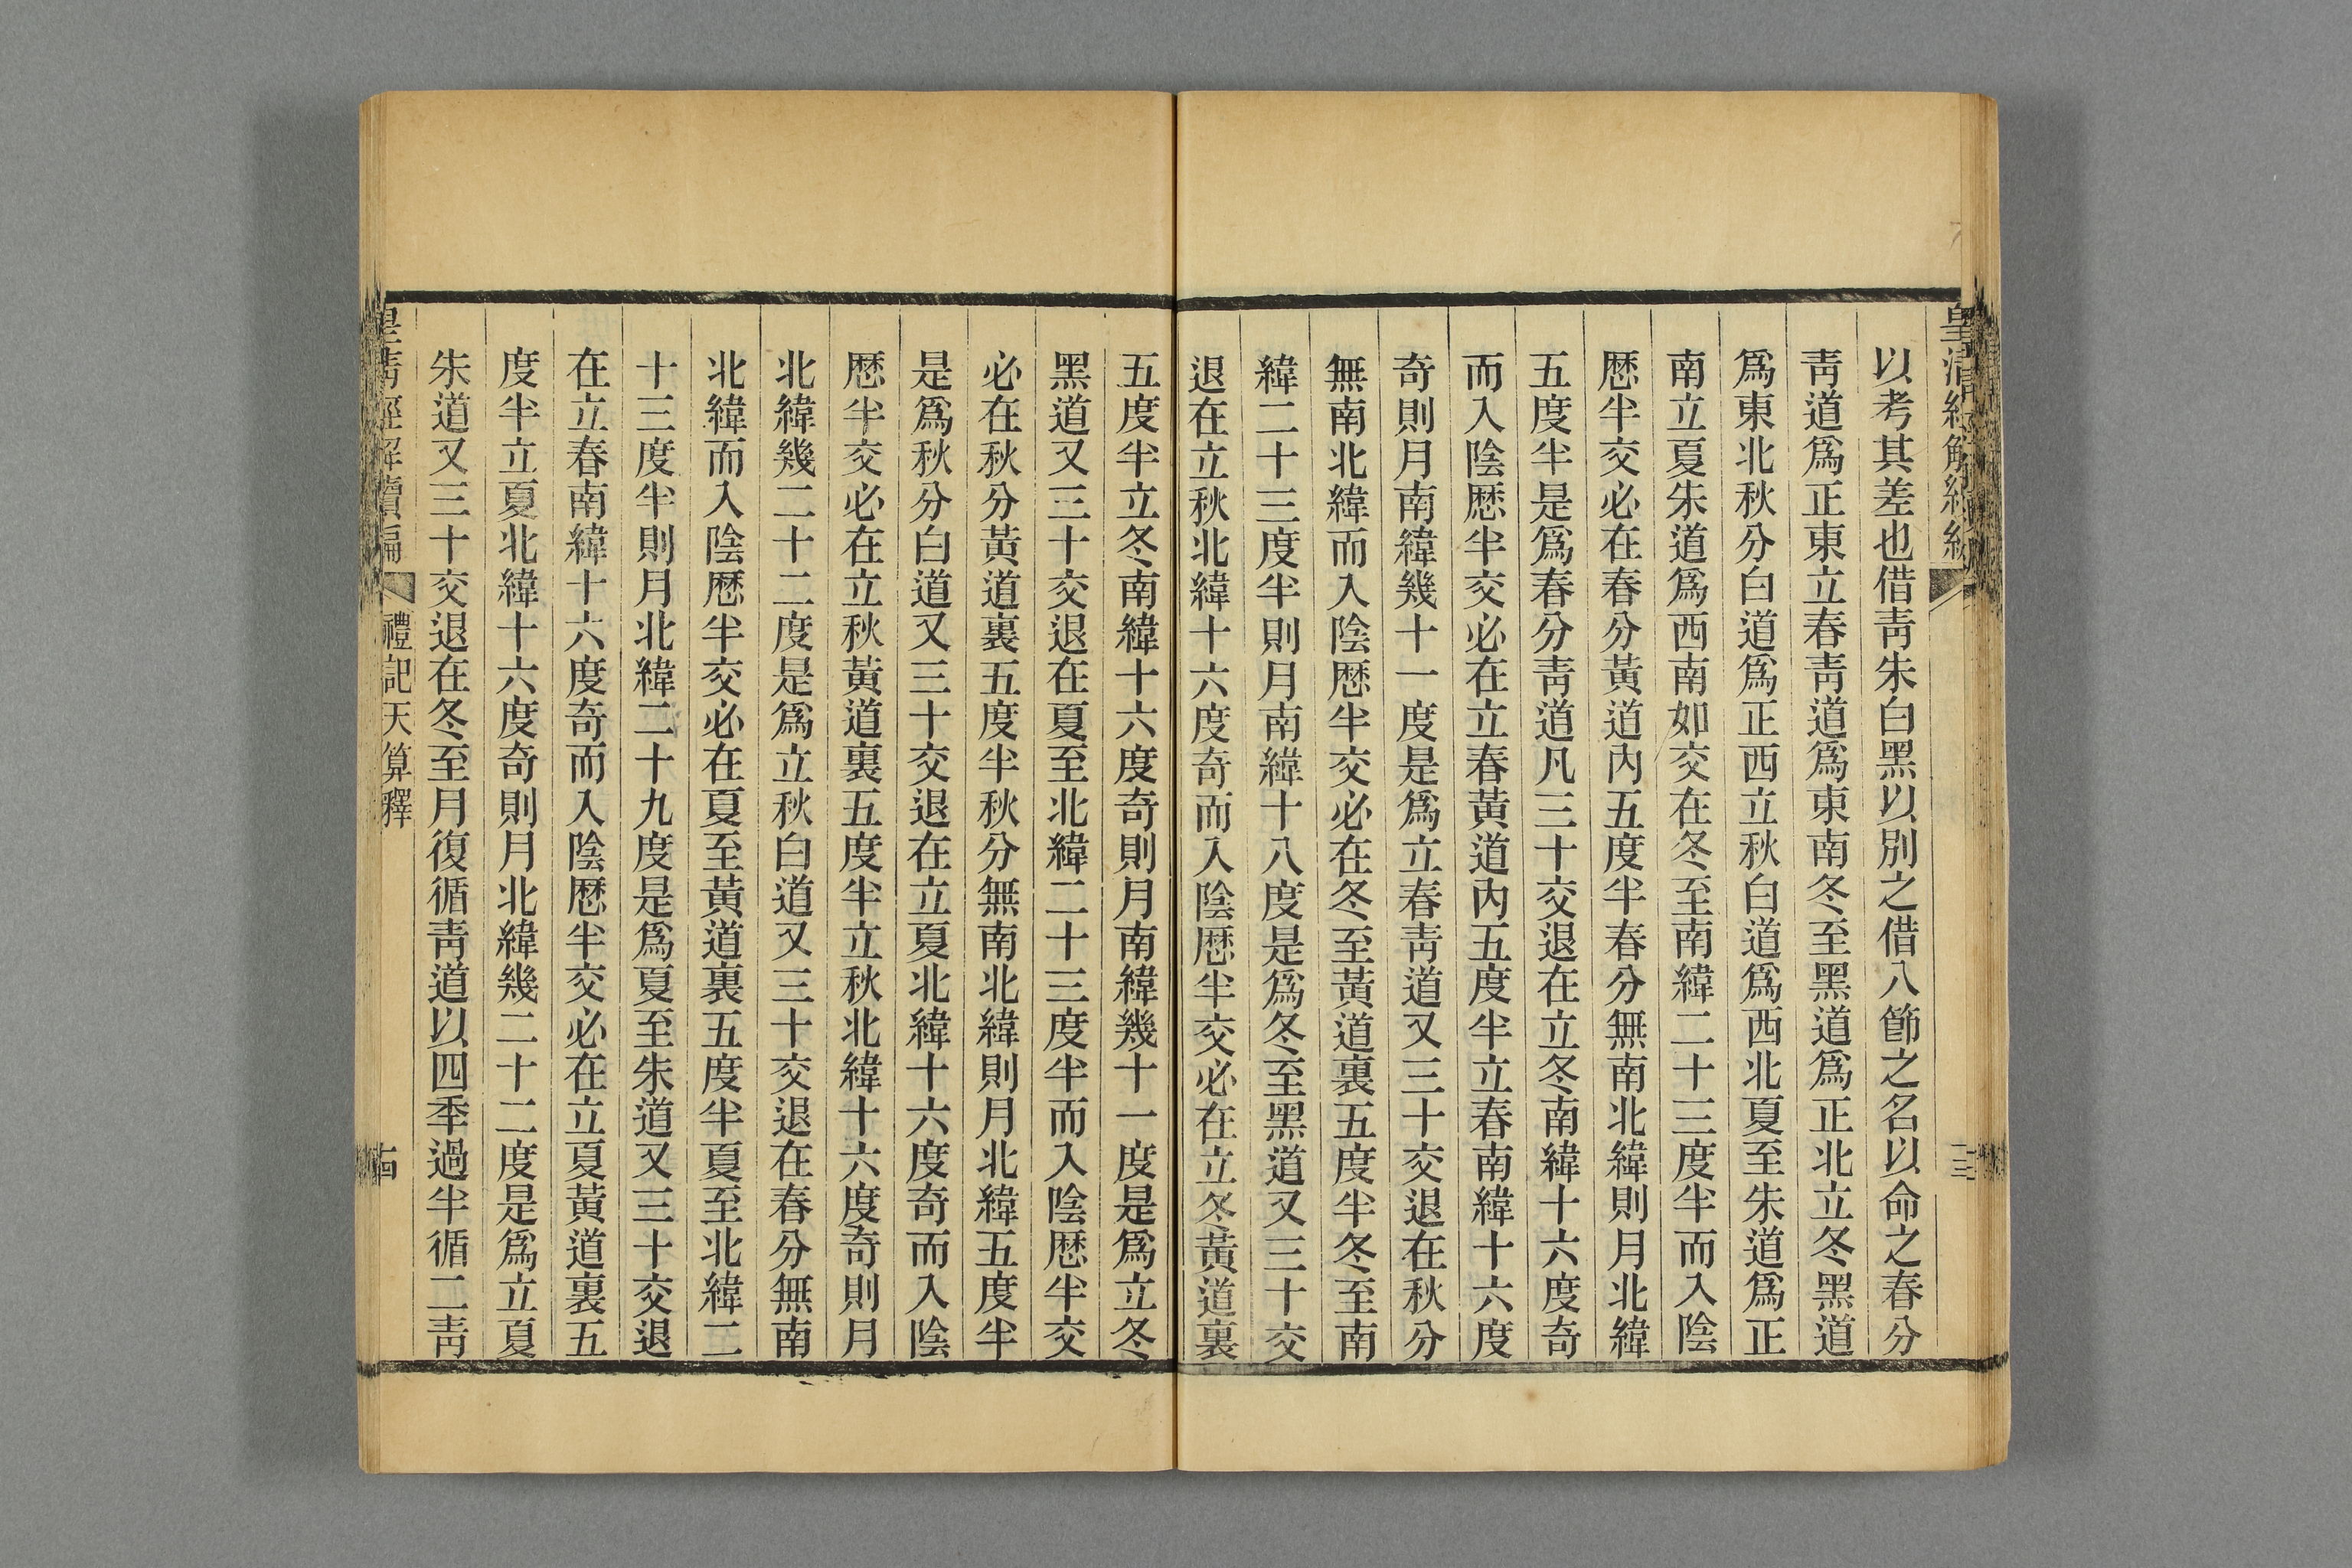 以考其差也借靑朱白黑以別之借八節之名以命之春分
靑道爲正東立春靑道爲東南冬至黑道爲正北立冬黑道
爲東北秋分白道爲正西立秋白道爲西北夏至朱道爲正
南立夏朱道爲西南如交在冬至南緯二十三度半而入陰
厯半交必在春分黃道內五度半春分無南北緯則月北緯
五度半是爲春分靑道凡三十交退在立冬南緯十六度奇
而入陰厯半交必在立春黃道內五度半立春南緯十六度
奇則月南緯幾十一度是爲立春靑道又三十交退在秋分
無南北緯而入陰厯半交必在冬至黃道裏五度半冬至南
緯二十三度半則月南緯十八度是爲冬至黑道又三十交
退在立秋北緯十六度奇而入陰厯半交必在立冬黃道裏
五度半立冬南緯十六度奇則月南緯幾十一度是爲立冬
黑道又三十交退在夏至北緯二十三度半而入陰厯半交
必在秋分黃道裏五度半秋分無南北緯則月北緯五度半
是爲秋分白道又三十交退在立夏北緯十六度奇而入陰
厯半交必在立秋黃道裏五度半立秋北緯十六度奇則月
北緯幾二十二度是爲立秋白道又三十交退在春分無南
北緯而入陰厯半交必在夏至黃道裏五度半夏至北緯二
十三度半則月北緯二十九度是爲夏至朱道又三十交退
在立春南緯十六度奇而入陰厯半交必在立夏黃道裏五
度半立夏北緯十六度奇則月北緯幾二十二度是爲立夏
朱道又三十交退在冬至月復循靑道以四季過半循二靑
皇淸經解續編 禮記天算釋 十四